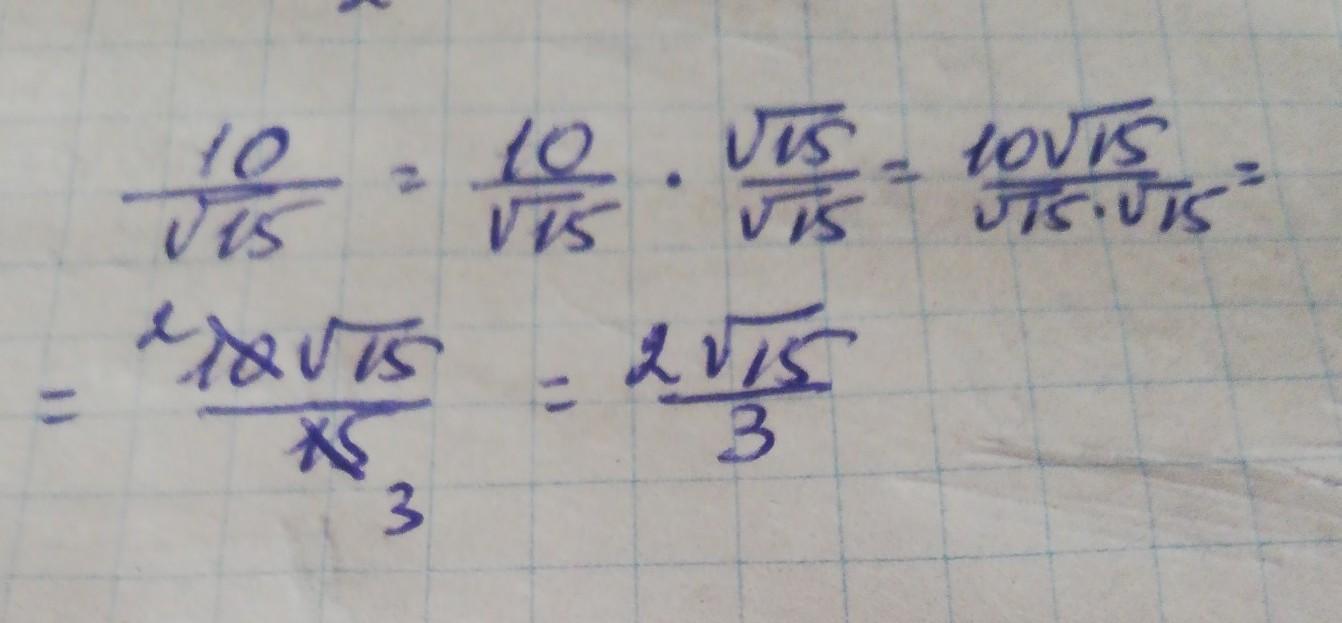 10/√15 = 10/√15 · √15/√15 = 10√15/√15·√15 =
= 2 10√15/15 3 = 2√15/3